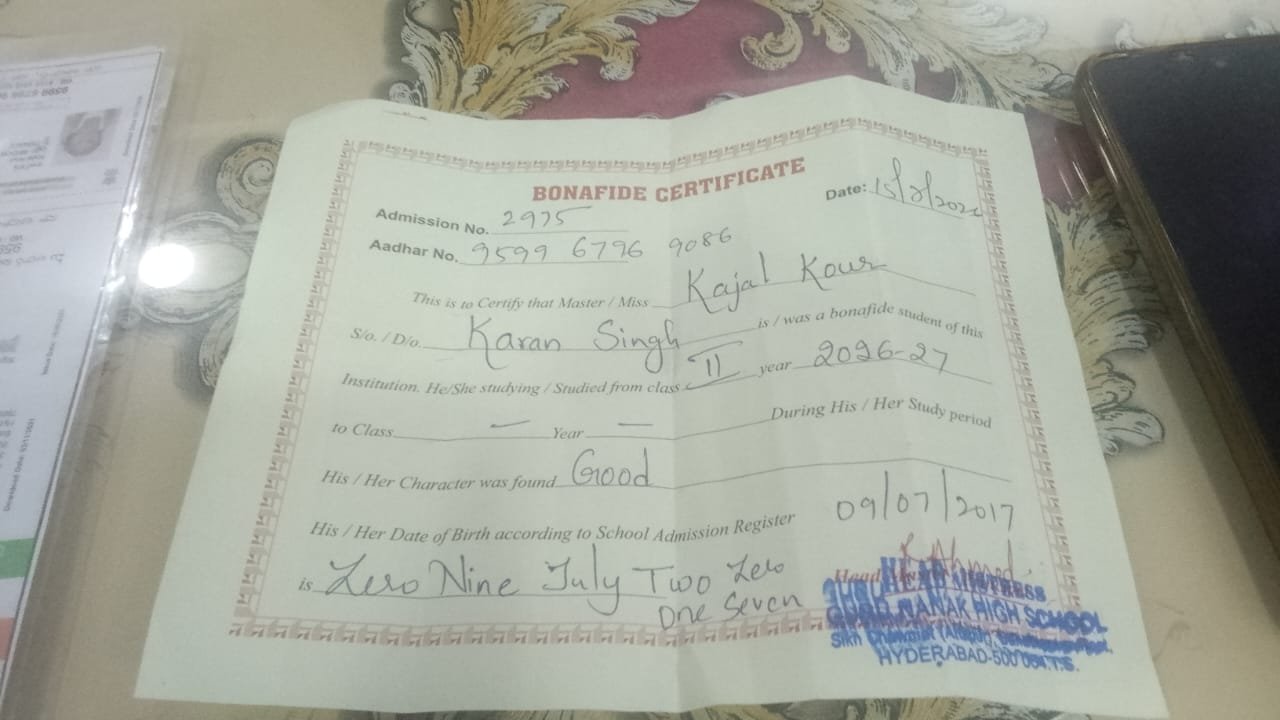 BONAFIDE CERTIFICATE
Date: 15/
Admission No. 2975
Aadhar No. 9599 6796 9086
This is to Certify that Master / Miss Kajal Kour
S/o. / D/o. Karan Singh is / was a bonafide student of this
Institution. He/She studying / Studied from class II year 2026-27
to Class — Year — During His / Her Study period
His / Her Character was found Good
His / Her Date of Birth according to School Admission Register 09/07/2017
is Zero Nine July Two Zero
One Seven
HEAD MISTRESS
GURU NANAK HIGH SCHOOL
HYDERABAD-500 T.S.